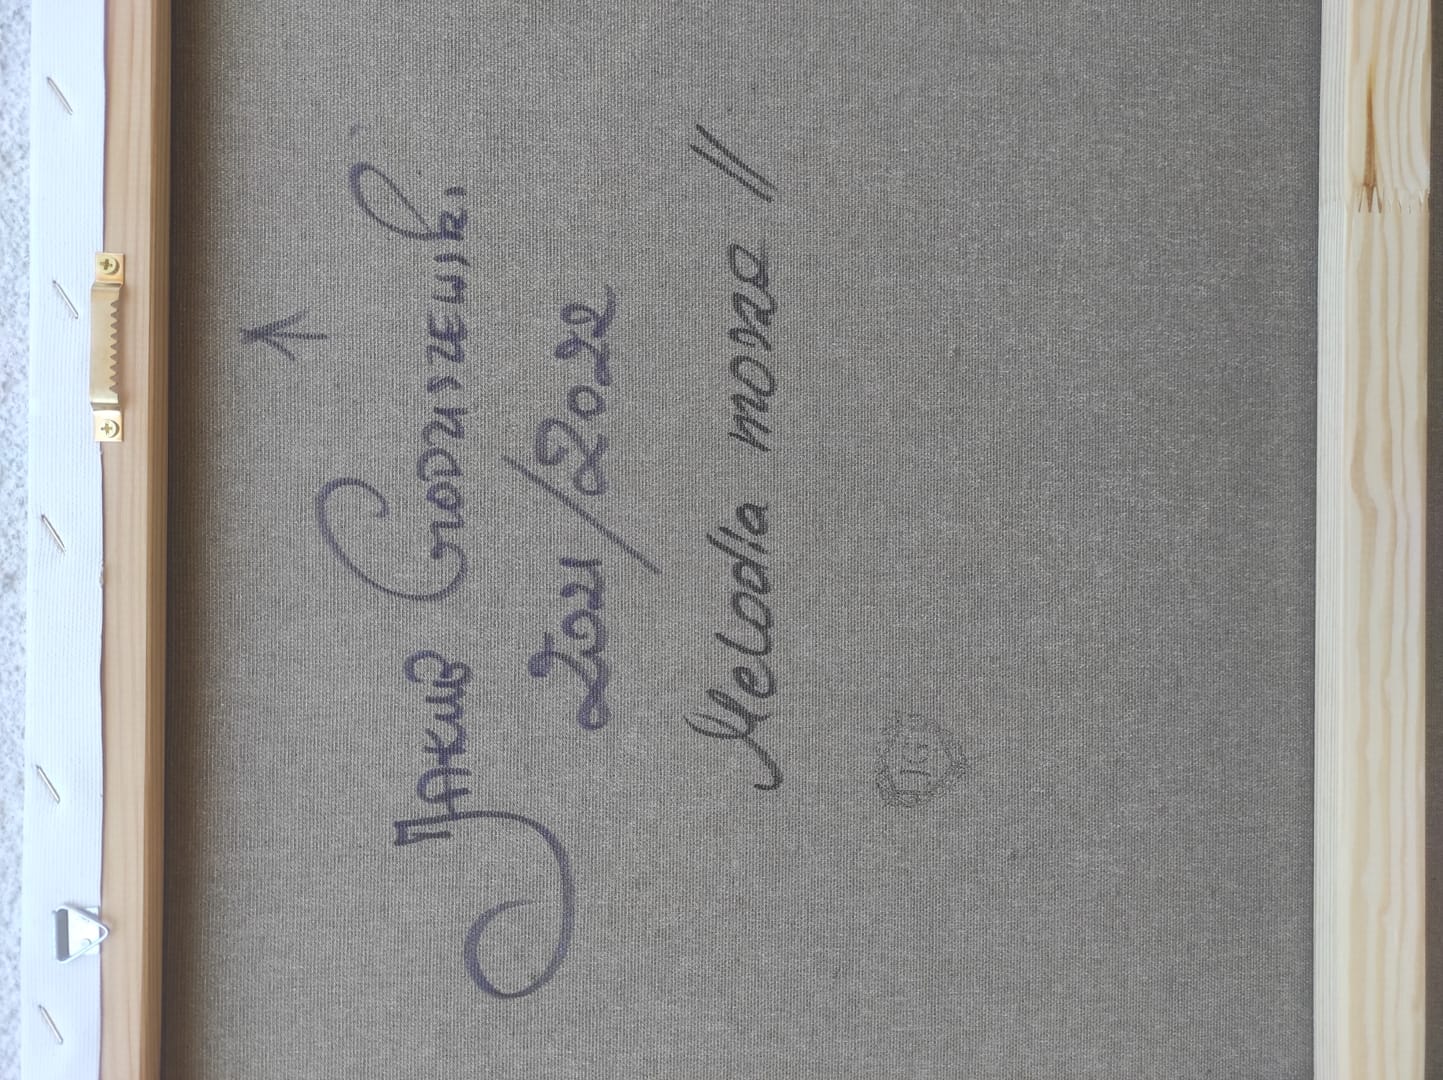 Jakub Godziszewski
2021/2022
Melodia morze II